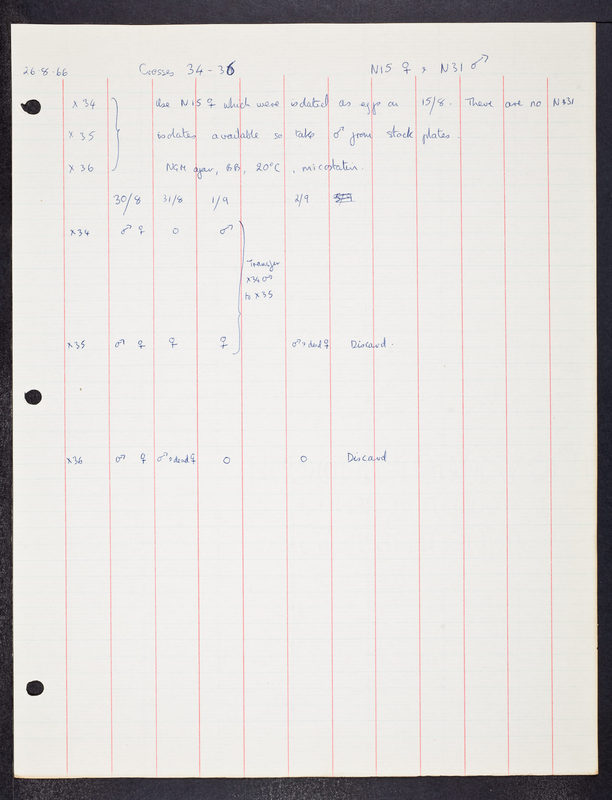 26·8·66 Crosses 34-36 N15 ♀ × N31 ♂
x 34 Use N15 ♀ which were isolated as eggs on 15/8. There are no N31
x 35 isolates available so take ♂ from stock plates.
x 36 NGM agar, BB, 20°C, micostatin.
30/8 31/8 1/9 2/9
x34 ♂ ♀ 0 ♂
Transfer
x34 ♂
to x35
x35 ♂ ♀ ♀ ♀ ♂ + dead ♀ Discard.
x36 ♂ ♀ ♂ + dead ♀ 0 0 Discard